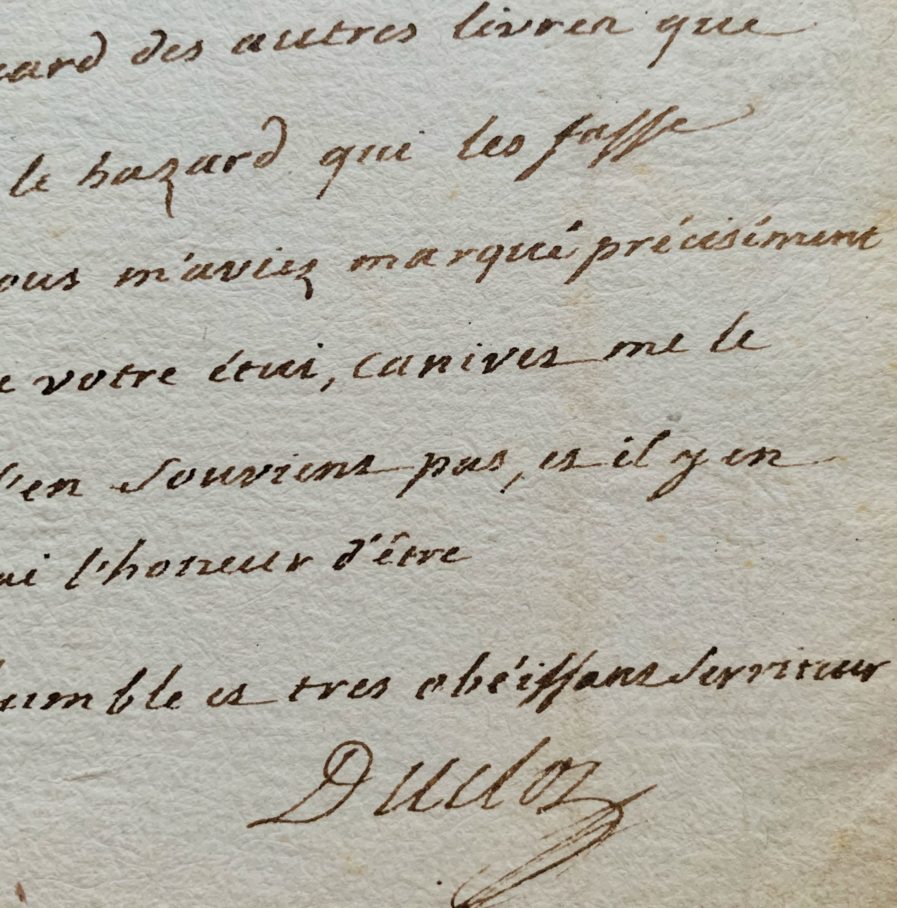 des autres livres que
le hazard qui les fasse
m'aviez marqué précisément
votre étui, Canivet me le
souvient pas, et il y en
l'honneur d'être
humble et tres obéissant serviteur
Duclos